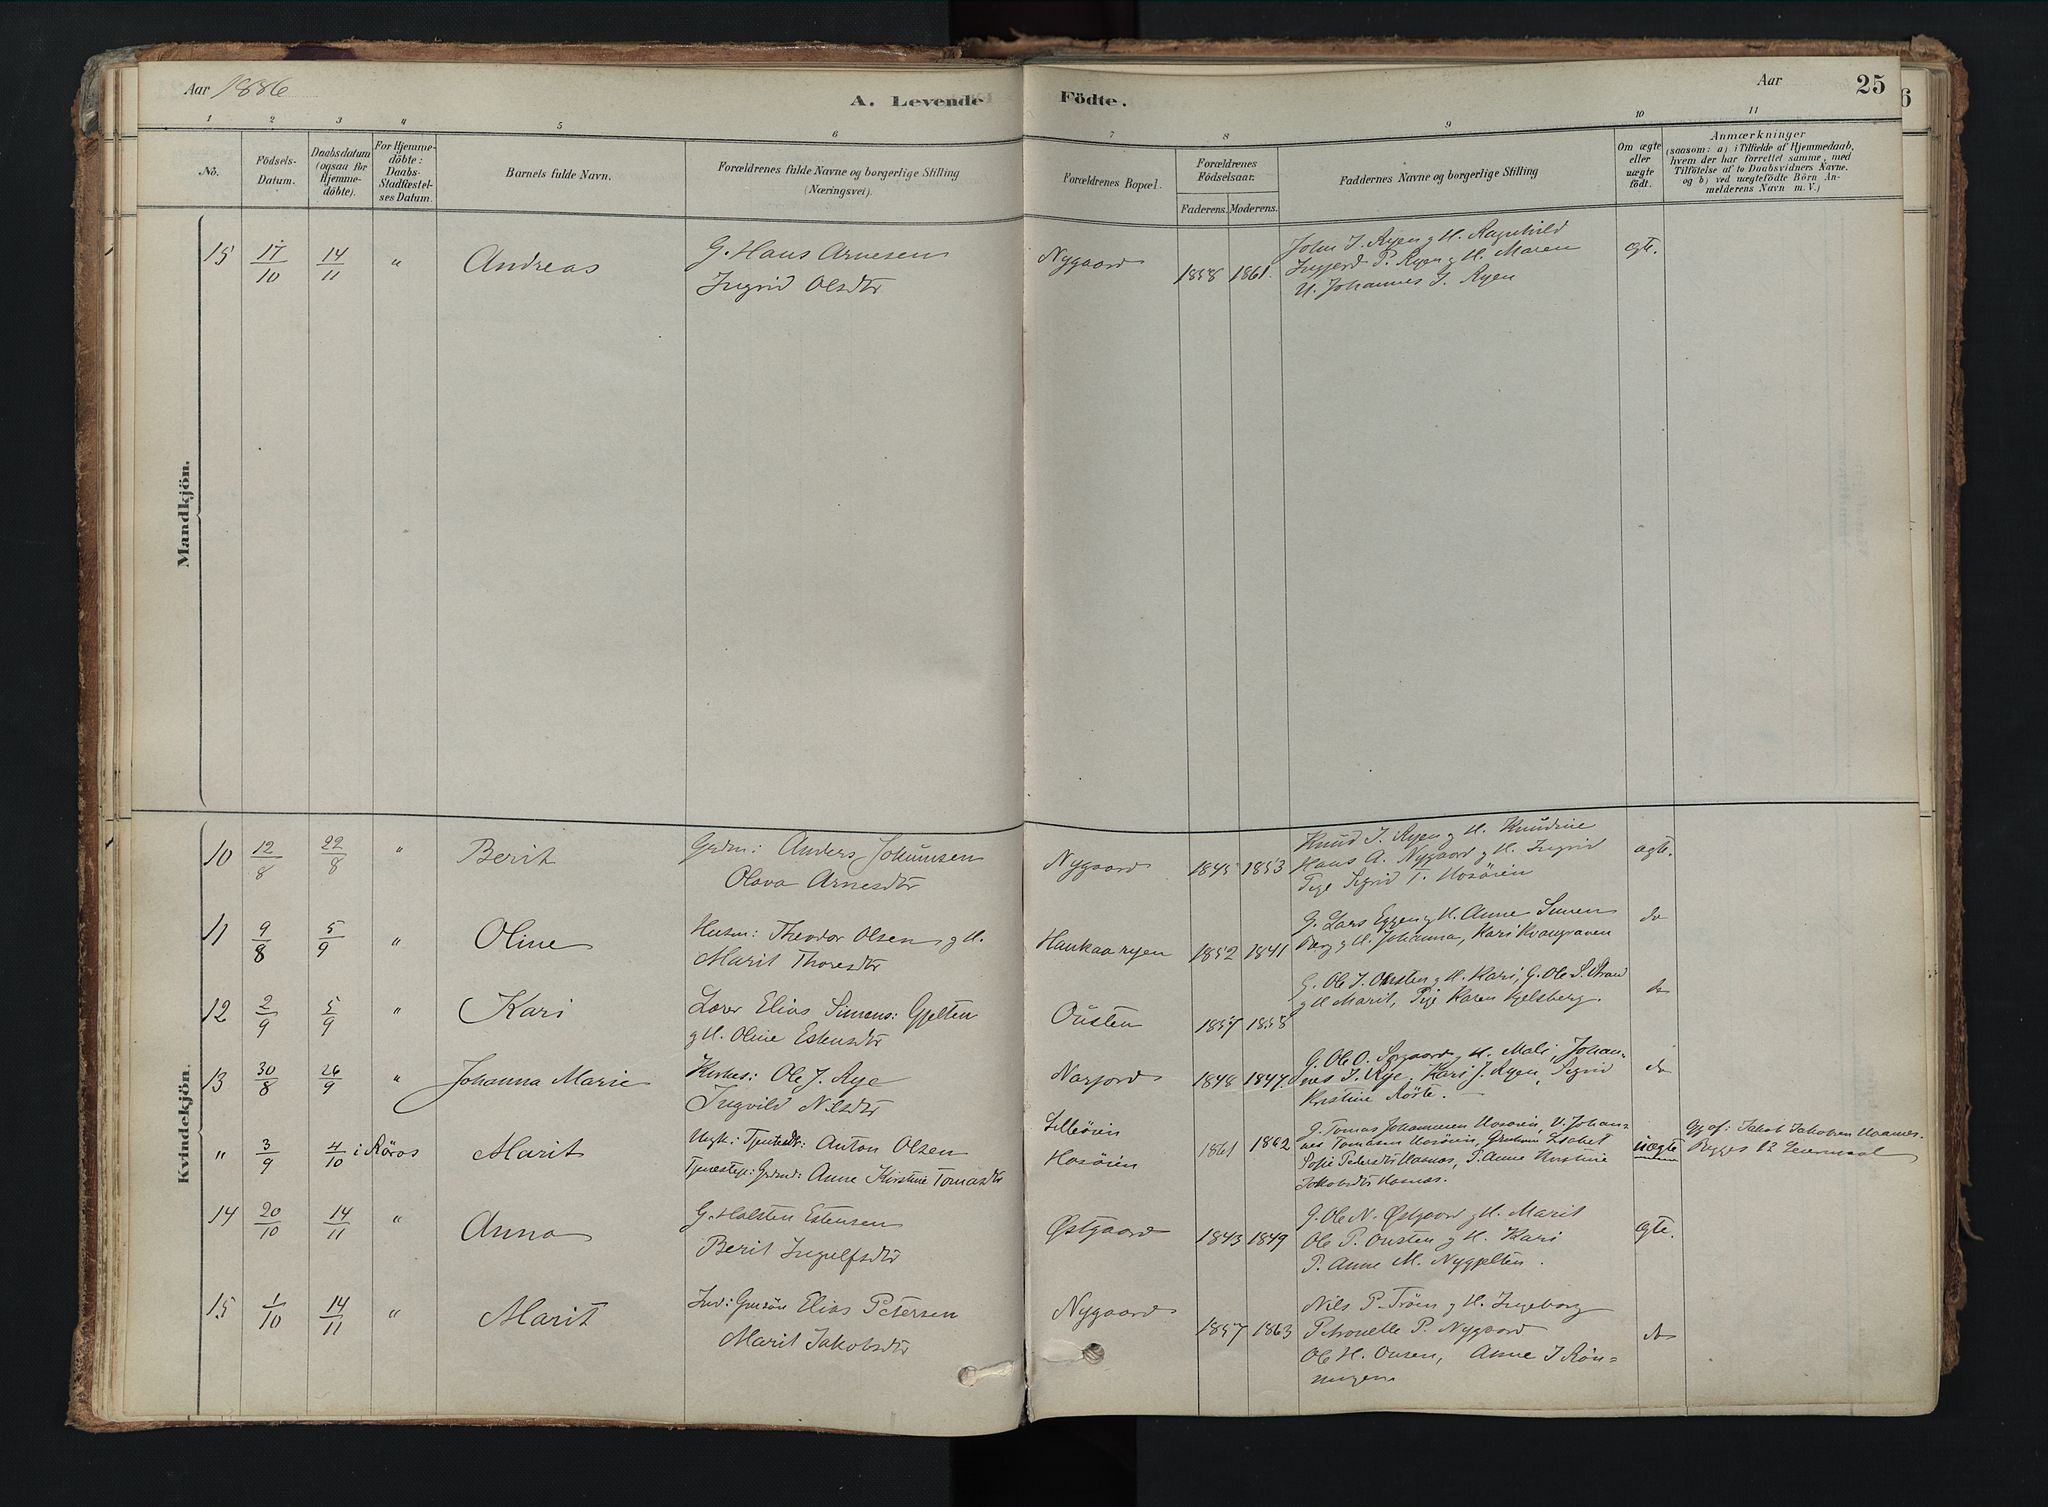 Aar 1886
A. Levende Födte.
Aar
25
6
1 2 3 4 5 6 7 8 9 10 11
No.
Födsels-
Datum.
Daabsdatum
(ogsaa for
Hjemme-
döbte).
For Hjemme-
döbte:
Daabs-
Stadfæstel-
ses Datum.
Barnets fulde Navn.
Forældrenes fulde Navne og borgerlige Stilling
(Næringsvei).
Forældrenes Bopæl.
Forældrenes
Födselsaar.
Faderens. Moderens.
Faddernes Navne og borgerlige Stilling
Om ægte
eller
uægte
födt.
Anmærkninger
(saasom: a) i Tilfælde af Hjemmedaab,
hvem der har forrettet samme, med
Tilföielse af to Daabsvidners Navne.
og b) ved uægtefödte Börn An-
melderens Navn m. V.)
Mandkjön.
15 17/10 14/11 " Andreas
G. Hans Arnesen
Ingrid Olsdtr
Nygaard 1858 1861.
John J. Ryen g H. Ragnhild
Ingjerd P. Ryen g H. Maren
U. Johannes G. Ryen
ægte.
Kvindekjön.
10 12/8 22/8 " Berit
Grdm: Anders Johnnsen
Olava Arnesdtr
Nygaard 1845 1853
Knud J. Ryen g H. Knudine
Hans A. Nygaard g H. Ingrid
Pige Sigrid T. Hosöien
ægte.
11 9/8 5/9 " Oline
Husm: Theodor Olsen g H.
Marit Thoresdtr
Haukaaryen 1852 1841
G. Lars Eggen g H. Anne Simen
Berg g H. Johanna, Kari Kvangraven
do
12 2/9 5/9 " Kari
Lærer Elias Simens: Gjelten
g H. Oline Estensdtr
Ousten 1857 1858
G. Ole J. Ousten g H. Kari, G. Ole S. Strand
g H Marit, Pige Karen Kjelsberg.
do
13 30/8 26/9 " Johanna Marie
Kirkes: Ole J. Rye
Ingvild Nilsdtr
Narjord 1848 1847.
G. Ole O. Sygaard g H. Mali, Johan-
nes J. Rye, Kari J. Ryen, Sigrid
Kristine Röste.
do
" 3/9 4/10 i Röros Marit
Ungk: Tjenestedr: Anton Olsen
Tjenestep: Grdmd: Anne Kirstine Tomasdtr
Lilleöien
Hosöien
1861 1862
G. Tomas Johannesen Hosöien, U. Johan-
nes Tomasen Hosöien, Lisbet
Sofie Pedersdtr Hosnæs, P. Anne Kirstine
Jakobsdtr Hosnæs.
uægte
Gj. af: Jakob Jakobsen Haanes.
Begges 12 Leiermaal
14 20/10 14/11 " Anna
G. Halsten Estensen
Berit Ingulfsdtr
Østgaard 1843 1849
G. Ole N. Østgaard g H. Marit
Ole P. Ousten g H. Kari
P. Anne M. Nygjelten.
ægte.
15 1/10 14/11 " Marit
Ind: Grdsön Elias Petersen
Marit Jakobsdtr
Nygaard 1857 1863
Nils P. Tröen g H. Ingeborg
Petronelle P. Nygaard
Ole H. Ousen, Anne J Rön-
ningen
do